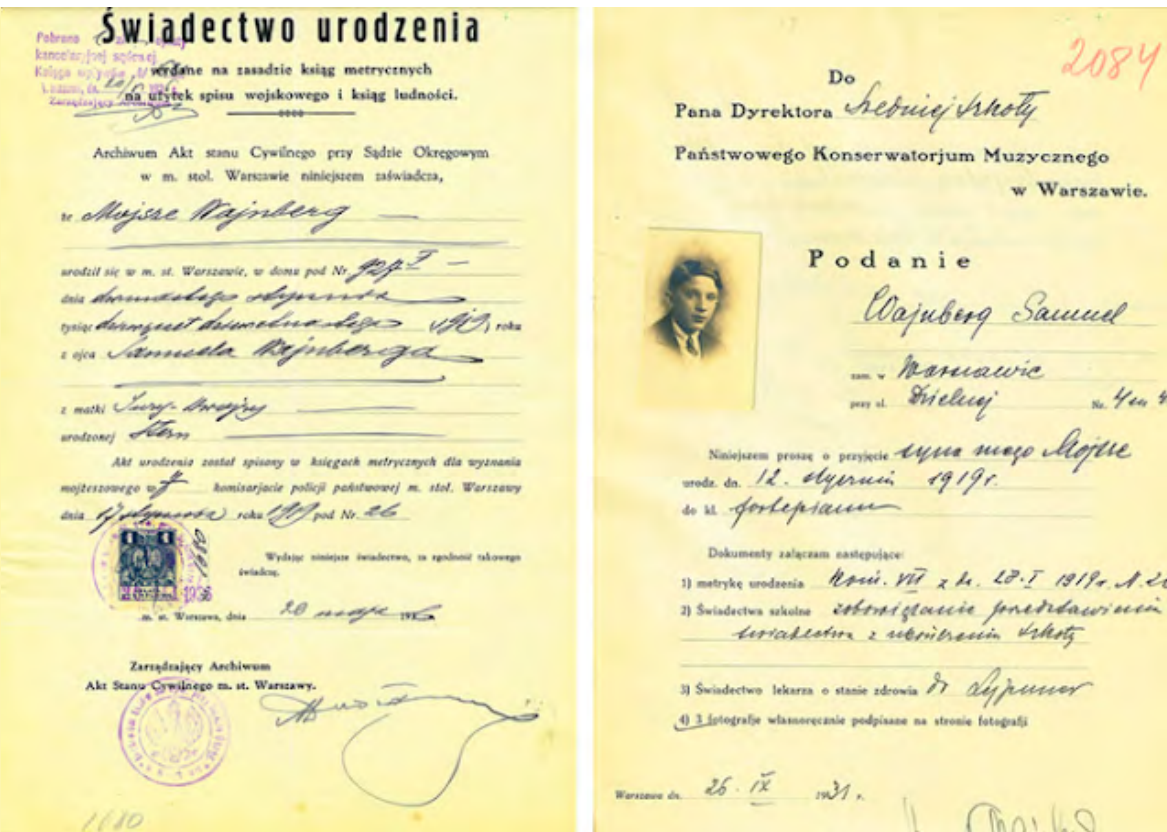 Świadectwo urodzenia
Pobrano
kancelaryjnej sądowej
Księga wpływów
Zarządzający
wydane na zasadzie ksiąg metrycznych
na użytek spisu wojskowego i ksiąg ludności.
Archiwum Akt stanu Cywilnego przy Sądzie Okręgowym
w m. stoł. Warszawie niniejszem zaświadcza,
że Mojsze Wajnberg
urodził się w m. st. Warszawie, w domu pod Nr. 927
dnia dwunastego stycznia
tysiąc dziewięćset dziewiętnastego 1919 roku
z ojca Samuela Wajnberga
z matki Sury-
urodzonej Stern
Akt urodzenia został spisany w księgach metrycznych dla wyznania
mojżeszowego w komisarjacie policji państwowej m. stoł. Warszawy
dnia 17 stycznia roku 1919 pod Nr. 26
Wydając niniejsze świadectwo, za zgodność takowego
świadczę.
m. st. Warszawa, dnia 20 maja
Zarządzający Archiwum
Akt Stanu Cywilnego m. st. Warszawy.
1680
2084
Do
Pana Dyrektora Średniej Szkoły
Państwowego Konserwatorjum Muzycznego
w Warszawie.
Podanie
Wajnberg Samuel
zam. w Warszawie
przy ul. Dzielnej Nr. 4
Niniejszem proszę o przyjęcie syna mego Mojsze
urodz. dn. 12. stycznia 1919 r.
do kl. fortepianu
Dokumenty załączam następujące:
1) metrykę urodzenia Kom. VII z dn. 1919 r. N.
2) Świadectwa szkolne zobowiązanie przedstawienia
świadectwa z ukończenia szkoły
3) Świadectwo lekarza o stanie zdrowia dr
4) 3 fotografje własnoręcznie podpisane na stronie fotografji
Warszawa dn. 26. IX 1931 r.